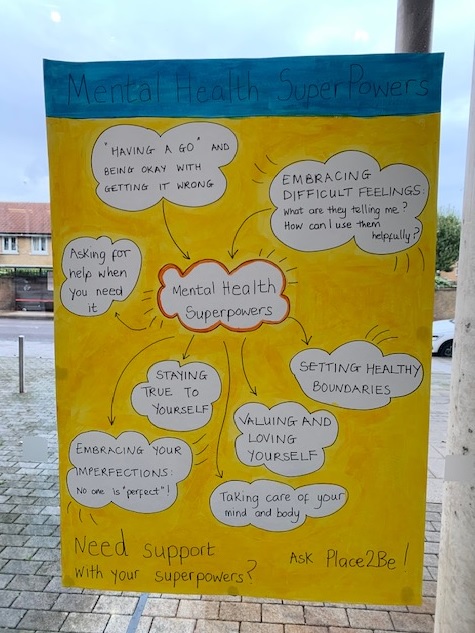 Mental Health SuperPowers
"HAVING A GO" AND
BEING OKAY WITH
GETTING IT WRONG
EMBRACING
DIFFICULT FEELINGS:
What are they telling me?
How can I use them
helpfully?
Asking for
help when
you need
it
Mental Health
Superpowers
SETTING HEALTHY
BOUNDARIES
STAYING
TRUE TO
YOURSELF
VALUING AND
LOVING
YOURSELF
EMBRACING YOUR
IMPERFECTIONS:
No one is "perfect"!
Taking care of your
mind and body
Need support
with your superpowers?
Ask Place2Be!